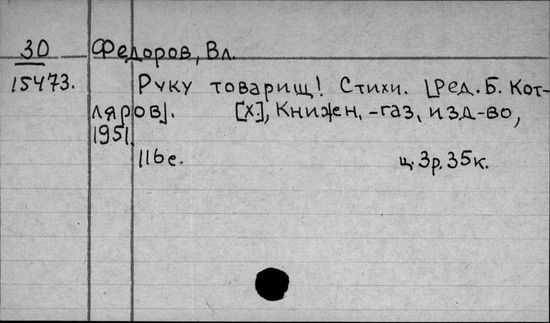 30 Федоров, Вл.
15473. Руку товарищ! Стихи. [Ред. Б. Кот-
ляров]. [Х.], Книжен, -газ, изд-во,
1951.
116с. ц. 3р. 35к.